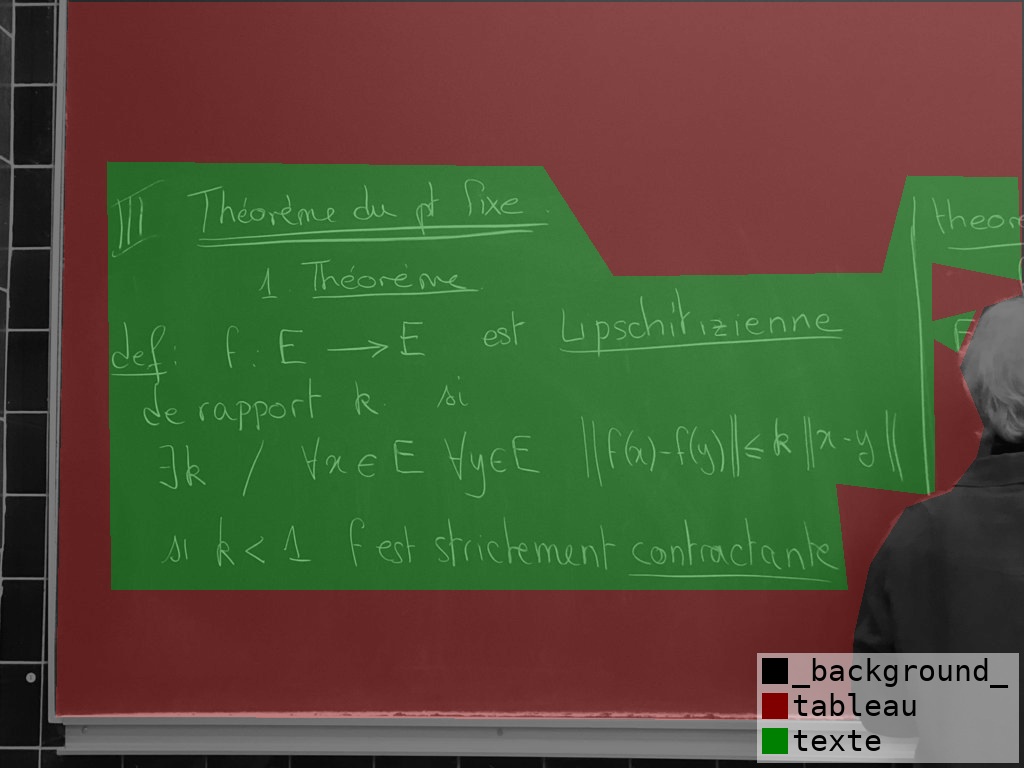 III Théorème du pt fixe.
1 Théorème
def: f: E → E est Lipschitizienne
de rapport k si
∃k / ∀x ∈ E ∀y ∈ E ||f(x)-f(y)|| ≤ k ||x-y||
si k < 1 f est strictement contractante
theor
E
_background_
tableau
texte